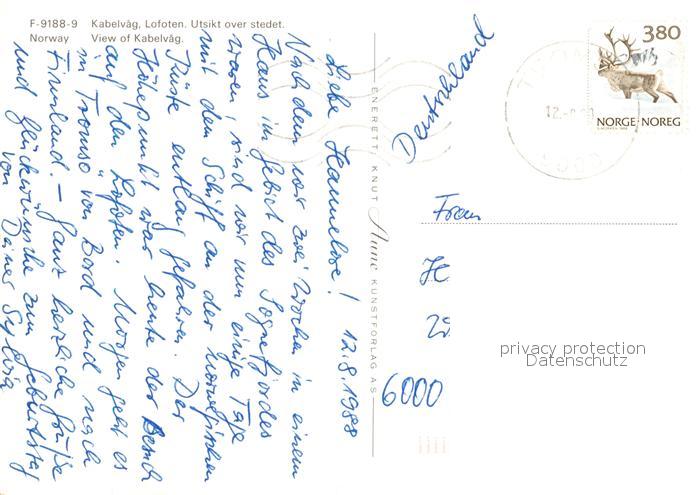 F-9188-9 Kabelvåg, Lofoten. Utsikt over stedet.
Norway View of Kabelvåg.
Liebe Hannelore! 12.8.1988
Nachdem wir zwei Wochen in einem
Haus im Gebiet des Sognefjordes
waren, sind wir nun einige Tage
mit dem Schiff an der norwegischen
Küste entlang gefahren. Der
Höhepunkt war heute der Besuch
auf den Lofoten. Morgen geht es
in Tromsö von Bord und nach
Finnland. – Ganz herzliche Grüße
und Glückwünsche zum Geburtstag
von Deiner Sylvia
ENERETT: KNUT Aune KUNSTFORLAG AS
Deutschland
380
NORGE·NOREG
Frau
6000
privacy protection
Datenschutz